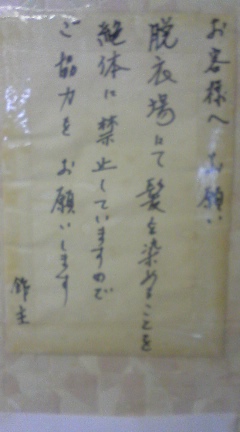 お客様へ お願い
脱衣場にて髪を染めることを
絶体に禁止していますので
ご協力をお願いします
館主